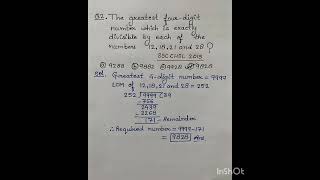 Q2. The greatest four-digit
number which is exactly
divisible by each of the
numbers 12, 18, 21 and 28?
SSC CHSL 2015
9288 9882 9828
Sol. Greatest 4-digit number = 9999
LCM of 12, 18, 21 and 28 = 252
252 9999 39
756
2439
-2268
171 → Remainder
∴ Required number = 9999-171
= 9828 Ans.
InShot